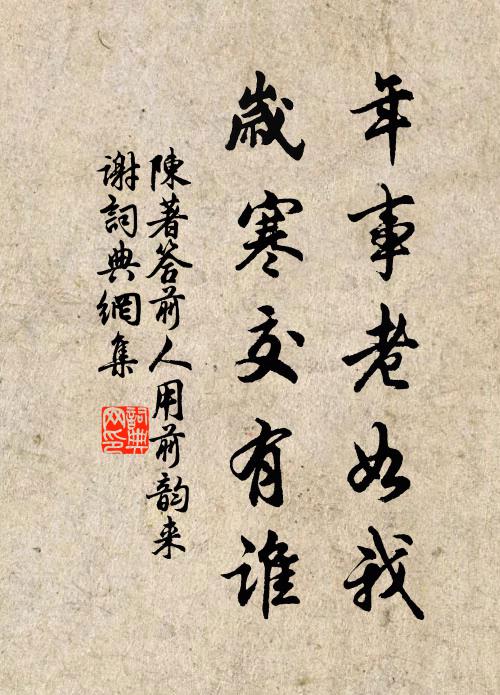 年事老如我
歲寒交有谁
陳著答前人用前韵来
谢詞典網集
詞典网印